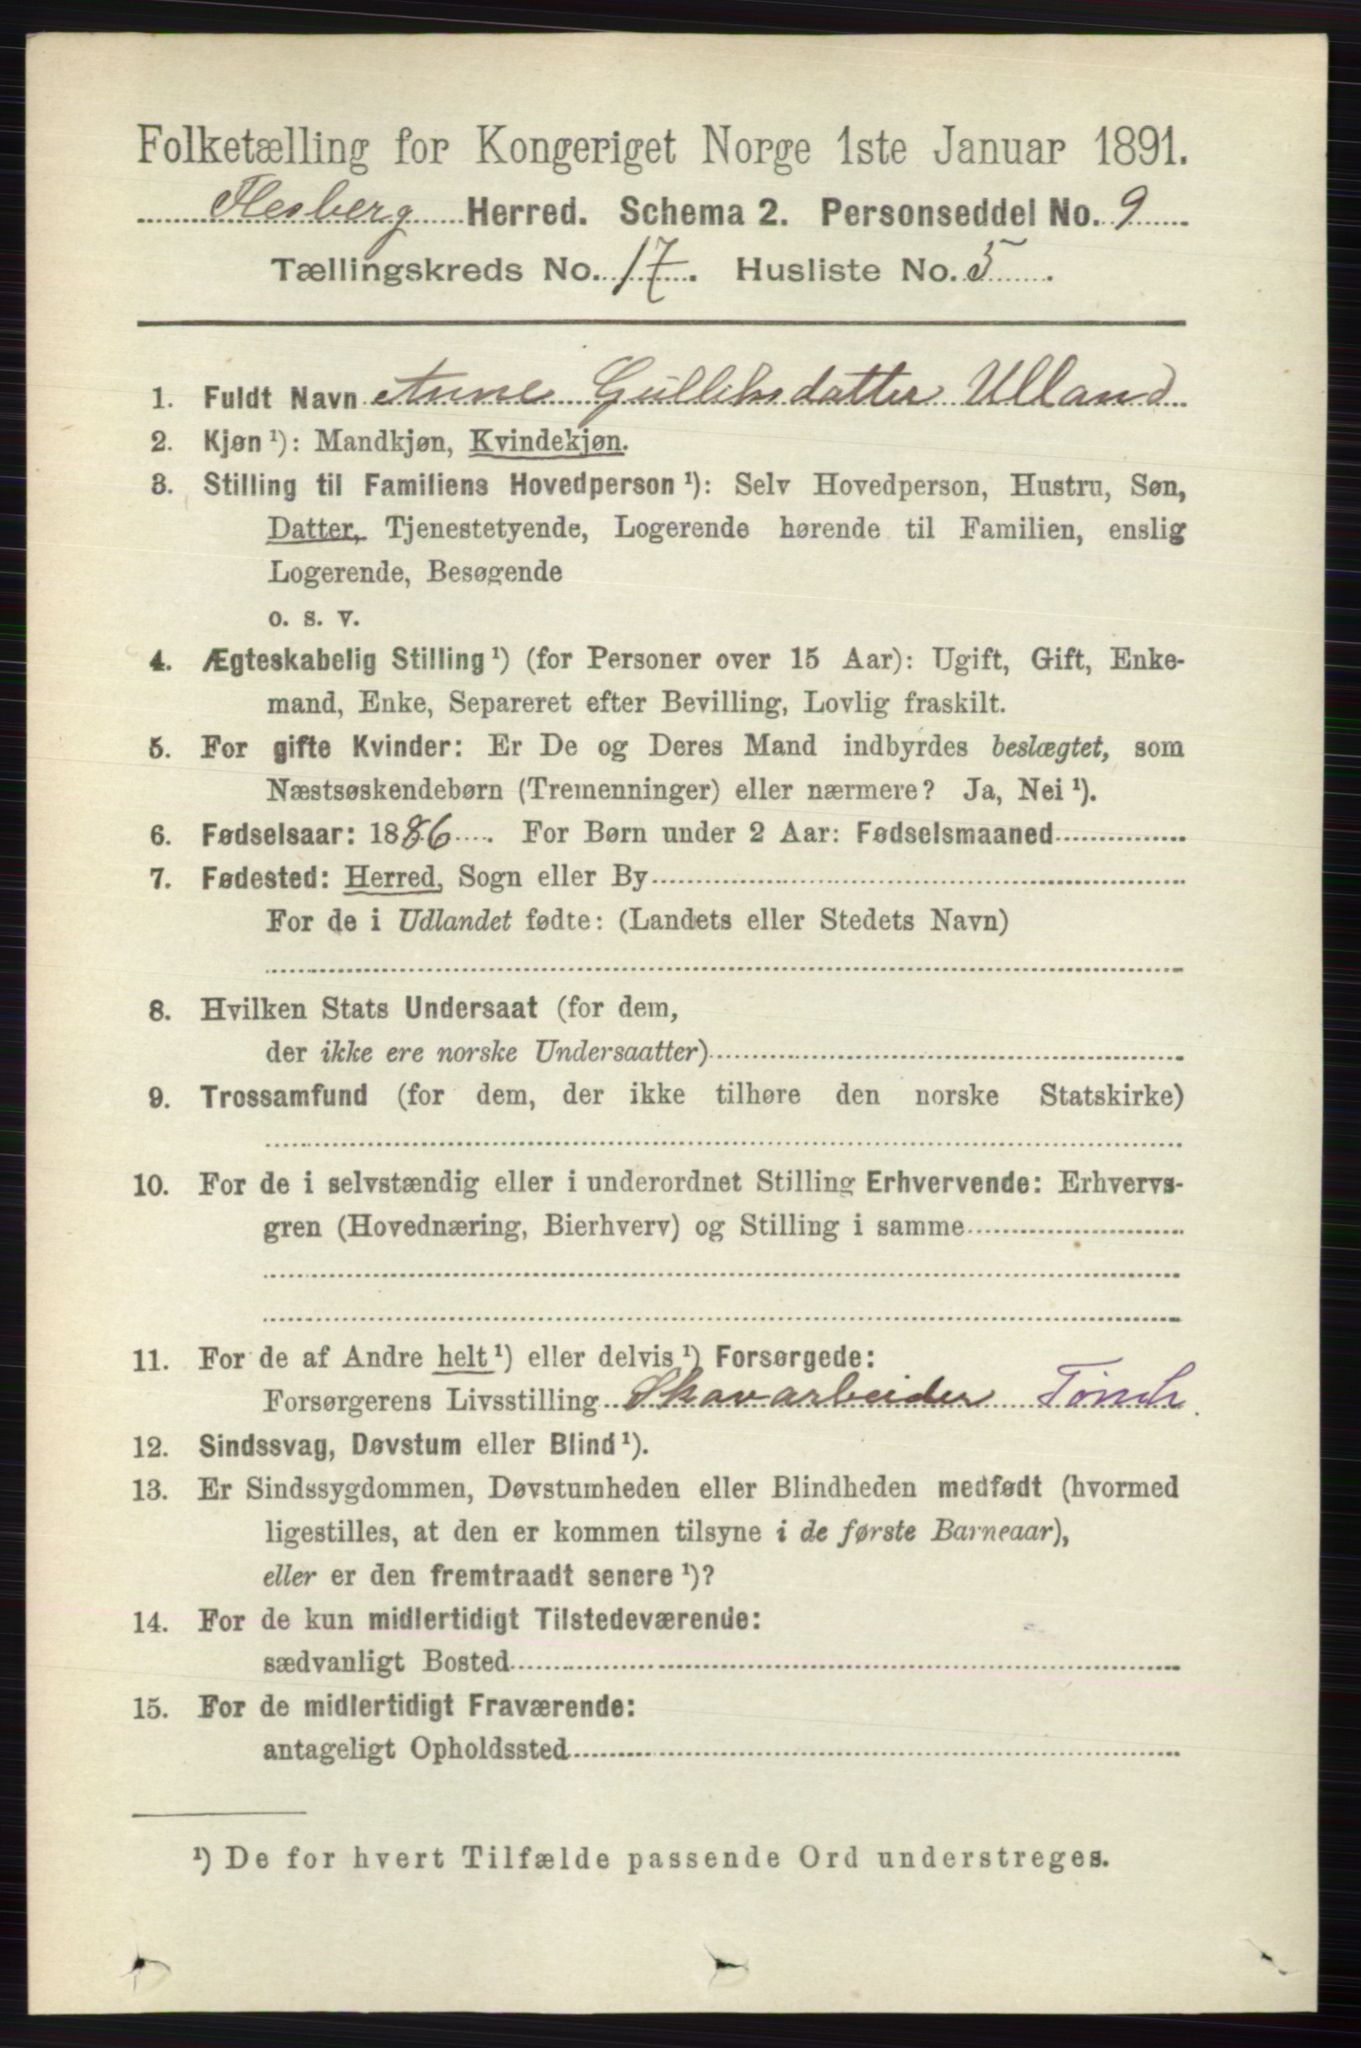 Folketælling for Kongeriget Norge 1ste Januar 1891.
Flesberg Herred. Schema 2. Personseddel No. 9
Tællingskreds No. 17. Husliste No. 5.
1. Fuldt Navn Anne Gulliksdatter Ulland
2. Kjøn¹): Mandkjøn, Kvindekjøn.
3. Stilling til Familiens Hovedperson¹): Selv Hovedperson, Hustru, Søn,
Datter, Tjenestetyende, Logerende hørende til Familien, enslig
Logerende, Besøgende
o. s. v.
4. Ægteskabelig Stilling¹) (for Personer over 15 Aar): Ugift, Gift, Enke-
mand, Enke, Separeret efter Bevilling, Lovlig fraskilt.
5. For gifte Kvinder: Er De og Deres Mand indbyrdes beslægtet, som
Næstsøskendebørn (Tremenninger) eller nærmere? Ja, Nei¹).
6. Fødselsaar: 1886. For Børn under 2 Aar: Fødselsmaaned
7. Fødested: Herred, Sogn eller By
For de i Udlandet fødte: (Landets eller Stedets Navn)
8. Hvilken Stats Undersaat (for dem,
der ikke ere norske Undersaatter)
9. Trossamfund (for dem, der ikke tilhøre den norske Statskirke)
10. For de i selvstændig eller i underordnet Stilling Erhvervende: Erhvervs-
gren (Hovednæring, Bierhverv) og Stilling i samme
11. For de af Andre helt¹) eller delvis¹) Forsørgede:
Forsørgerens Livsstilling Skovarbeider
12. Sindssvag, Døvstum eller Blind¹).
13. Er Sindssygdommen, Døvstumheden eller Blindheden medfødt (hvormed
ligestilles, at den er kommen tilsyne i de første Barneaar),
eller er den fremtraadt senere¹)?
14. For de kun midlertidigt Tilstedeværende:
sædvanligt Bosted
15. For de midlertidigt Fraværende:
antageligt Opholdssted
¹) De for hvert Tilfælde passende Ord understreges.